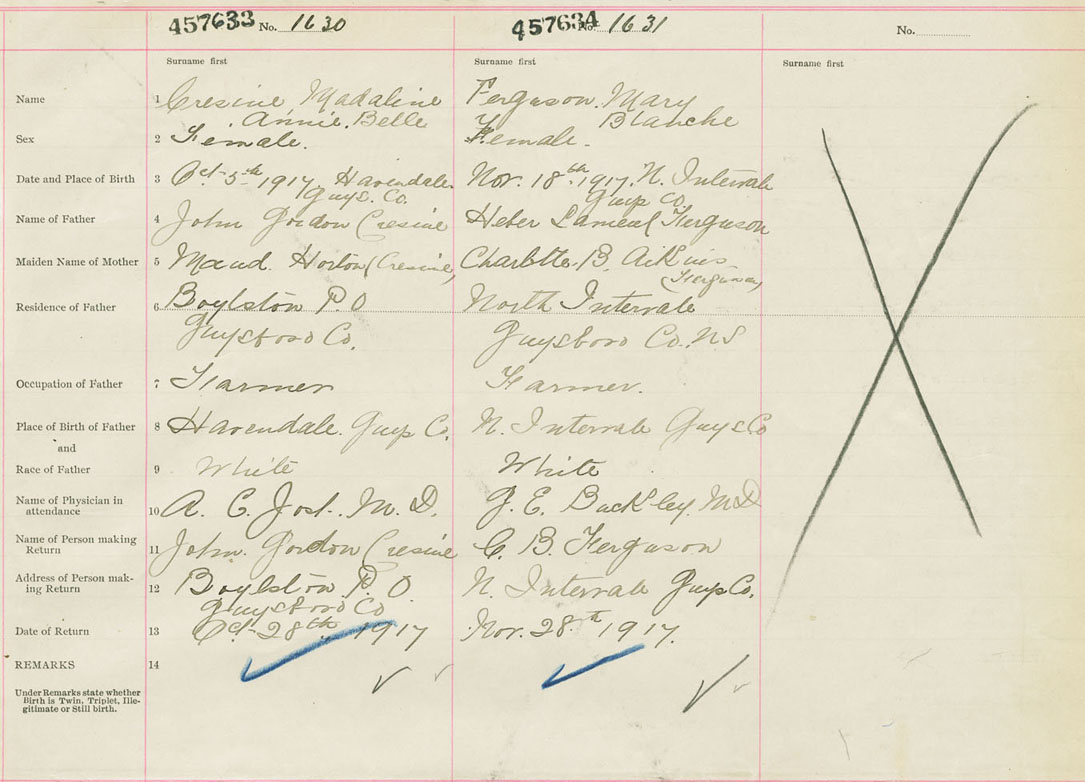 457633 No. 1630
457634 No. 1631
No.
Surname first
Surname first
Surname first
Name
1
Cresine, Madaline
Annie. Belle
Ferguson. Mary
Blanche
Sex
2
Female.
Female.
Date and Place of Birth
3
Oct. 5th 1917, Havendale
Guys. Co.
Nov. 18th 1917. N. Intervale
Guys Co.
Name of Father
4
John Gordon Cresine
Heber Ferguson
Maiden Name of Mother
5
Maud. Horton (Cresine)
Charlotte. B. Aikins
(Ferguson)
Residence of Father
6
Boylston P. O
Guysboro Co.
North Intervale
Guysboro Co. N S
Occupation of Father
7
Farmer
Farmer.
Place of Birth of Father
8
Havendale. Guys C.
N. Intervale Guys Co
and
Race of Father
9
White
White
Name of Physician in
attendance
10
A. C. Jost. M. D.
G. E. Buckley. M D
Name of Person making
Return
11
John. Gordon Cresine
C. B. Ferguson
Address of Person mak-
ing Return
12
Boylston P. O.
Guysboro Co
N. Intervale Guys Co.
Date of Return
13
Oct. 28th, 1917
Nov. 28th 1917.
REMARKS
14
Under Remarks state whether
Birth is Twin, Triplet, Ille-
gitimate or Still birth.